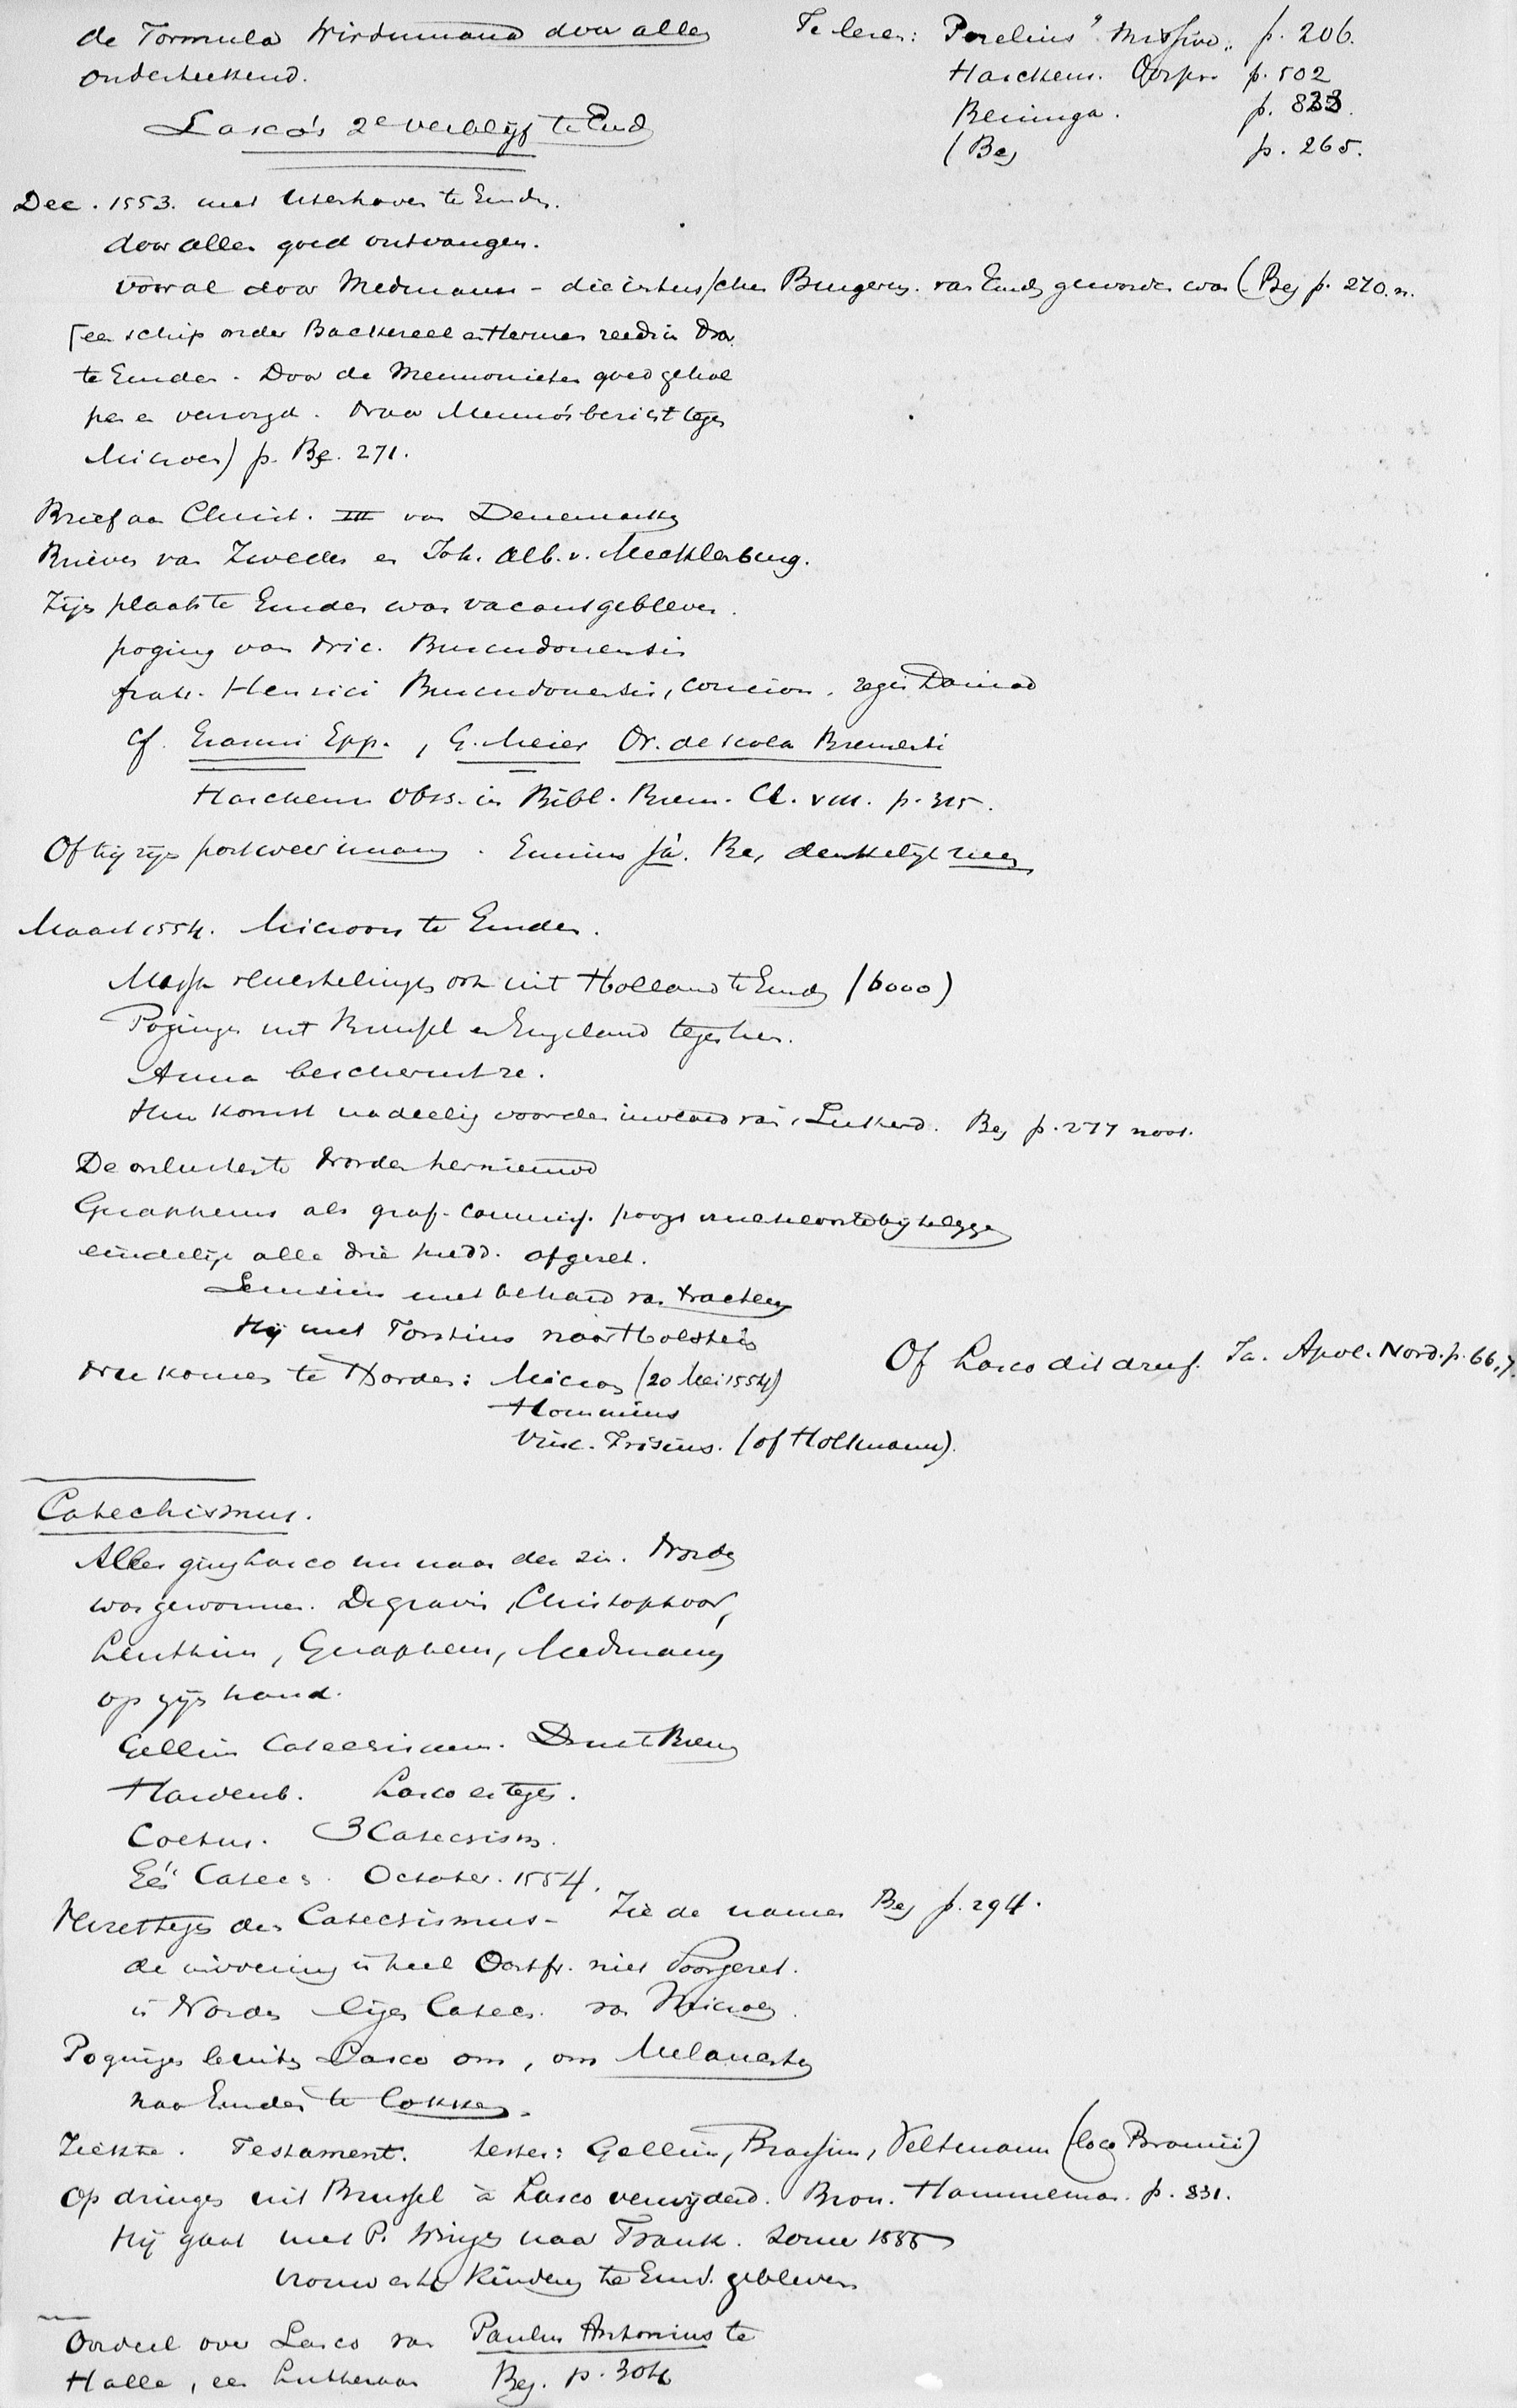 de Formula Wirdumana door allen
onderteekend.
Te lezen: Perelius " Missive „ p. 206.
Harckenr. Oorspr. p. 502
Beninga. p. 833.
(Bej p. 265.
Lasco's 2e verblijf te Emd
Dec. 1553. met Utenhoven te Emden.
door allen goed ontvangen.
vooral door Medmann - die intusschen Burgem. van Emden geworden was (Bej p. 270. n.
[een schip onder Backereel en Hermes reeds in Dec.
te Emden. Door de Mennonieten goed gehol
pen en verzorgd. Naar Menno's bericht tegen
Micron) p. Be. 271.
Brief aan Christ. III van Denemarken
Brieven van Zweden en Joh. Alb. v. Mecklenburg.
Zijn plaats te Emden was vacant gebleven.
poging van Nic. Buscoducensis
frat. Henrici Buscoducensis, concion. regis Daniae
Cf. Erasmi Epp., G. Meier Or. de scola Bremensi
Harckenr. Obss. in Bibl. Brem. Cl. VIII. p. 315.
Of hij zijn post weer innam. Emmius Ja. Be, denkelijk neen
Maart 1554. Micron te Emden.
Massa vluchtelingen ook uit Holland te Emden (6000)
Pogingen uit Brussel en Engeland tegen hen.
Anna beschermt ze.
Hun komst nadeelig voor den invloed van Lutherd. Bej p. 277 noot.
De onlusten te Norden hernieuwd
Gnapheus als graf. commiss. poogt bij te leggen
eindelijk alle drie predd. afgezet.
Lemsius met behoud van tractem
Hij met Forstius naar Holstein
Nu komen te Norden: Micron (20 Mei 1554)
Hommius
Vinc. Frisius. (of Holtmann).
Of Lasco dit dreef. Ja. Apol. Nord. p. 66, 7.
Catechismus.
Alles ging Lasco nu naar den zin. Norden
was gewonnen. De gravin, Christophoor,
Lenthius, Gnapheus, Medmann
op zijn hand.
Gellius Catechismus. Drukt Brem
Hardenb. Lasco er tegen.
Coetus. 3 Catechism.
Eén Catech. October. 1554.
Verzet tegen den Catechismus - Zie de namen Bej p. 294.
de invoering in heel Oostfr. niet doorgezet.
in Norden eigen Catech. van Micron.
Pogingen buiten Lasco om, om Melanchton
naar Emden te lokken.
Ziekte. Testament. testes: Gellius, Brassius, Veltmann (loco Bramii)
Op dringen uit Brussel à Lasco verwijderd. Bron. Hammelman. p. 831.
Hij gaat met P. Wingen naar Frank. zomer 1555
vrouw en kinderen te Emd. gebleven
Oordeel over Lasco van Paulus Antonius te
Halle, een Lutheraan Bej. p. 304